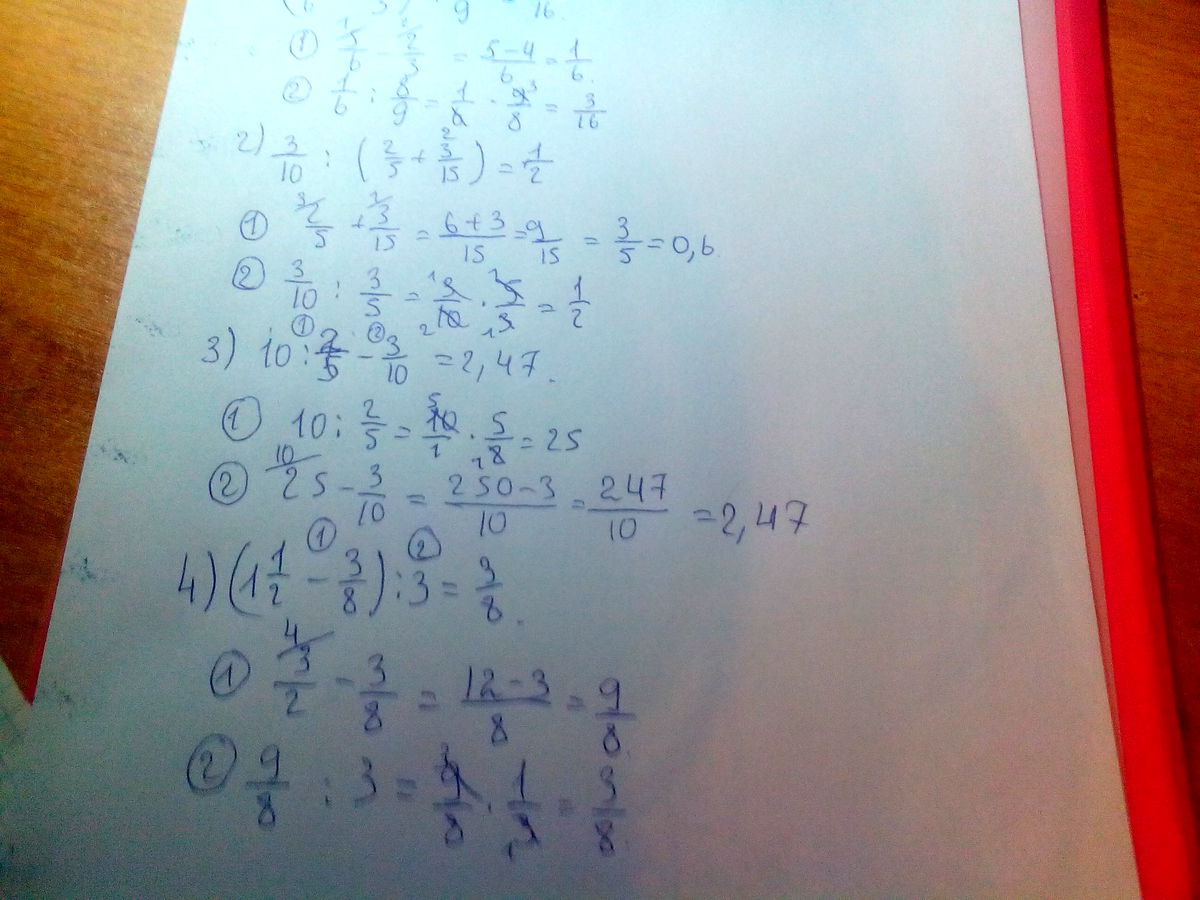 9 16.
① 5/6 - 2/3 = (5-4)/6 = 1/6.
② 1/6 : 8/9 = 1/6 · 9/8 = 3/16
2) 3/10 : (2/5 + 3/15) = 1/2
① 2/5 + 3/15 = (6+3)/15 = 9/15 = 3/5 = 0,6
② 3/10 : 3/5 = 3/10 · 5/3 = 1/2
3) 10 : 2/5 - 3/10 = 2,47.
① 10 : 2/5 = 10/1 · 5/8 = 25
② 25 - 3/10 = (250-3)/10 = 247/10 = 2,47
4) (1 1/2 - 3/8) : 3 = 3/8.
① 3/2 - 3/8 = (12-3)/8 = 9/8.
② 9/8 : 3 = 9/8 · 1/3 = 3/8.